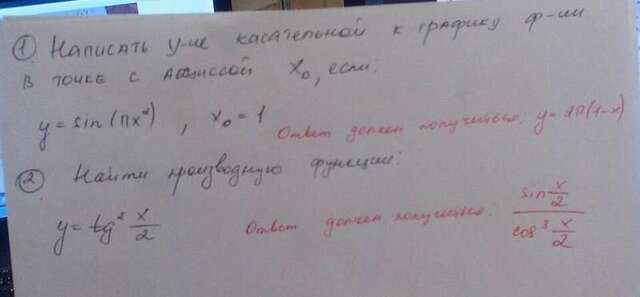 ① Написать ур-ие касательной к графику ф-ии
в точке с абциссой x₀, если:
y = sin (πx²) , x₀ = 1 Ответ должен получиться: y = 2π(1-x)
② Найти производную функции:
y = tg² x/2 Ответ должен получиться: sin x/2 / cos³ x/2